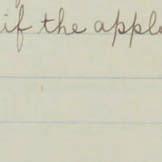 if the apple